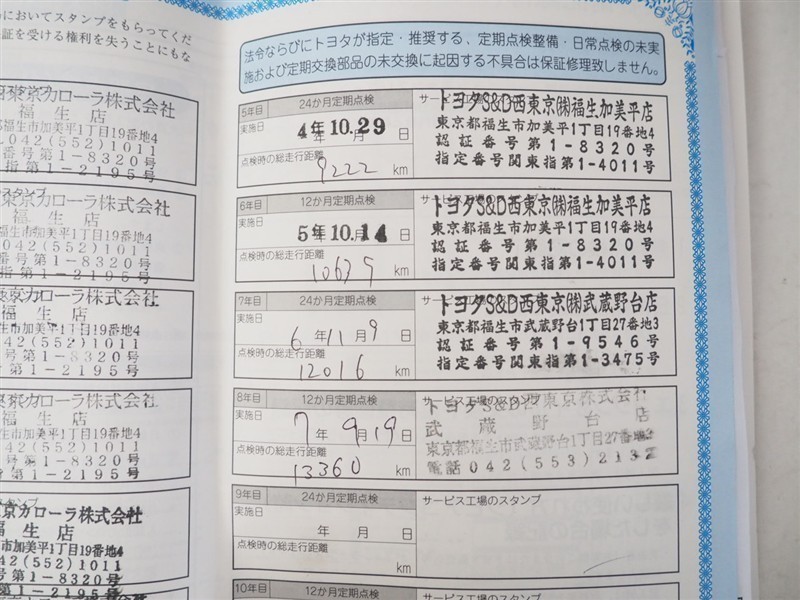 においてスタンプをもらってくだ
証を受ける権利を失うことにもな
西東京カローラ株式会社
福生店
都福生市加美平1丁目19番地4
042(552)1011
番号第1-8320号
指第1-2195号
東京カローラ株式会社
福生店
福生市加美平1丁目19番地4
042(552)1011
番号第1-8320号
関東指第1-2195号
東京カローラ株式会社
福生店
生市加美平1丁目19番地4
042(552)1011
号第1-8320号
指第1-2195号
東京カローラ株式会社
福生店
市加美平1丁目19番地4
042(552)1011
号第1-8320号
指第1-2195号
スタンプ
京カローラ株式会社
福生店
市加美平1丁目19番地4
42(552)1011
号第1-8320号
第1-2195号
法令ならびにトヨタが指定・推奨する、定期点検整備・日常点検の未実
施および定期交換部品の未交換に起因する不具合は保証修理致しません。
5年目 24か月定期点検
実施日
4年10.29日
点検時の総走行距離
9222 km
サービス工場のスタンプ
トヨタS&D西東京㈱福生加美平店
東京都福生市加美平1丁目19番地4
認証番号第1-8320号
指定番号関東指第1-4011号
6年目 12か月定期点検
実施日
5年10.14日
点検時の総走行距離
10635 km
サービス工場のスタンプ
トヨタS&D西東京㈱福生加美平店
東京都福生市加美平1丁目19番地4
認証番号第1-8320号
指定番号関東指第1-4011号
7年目 24か月定期点検
実施日
6年11月9日
点検時の総走行距離
12016 km
サービス工場のスタンプ
トヨタS&D西東京㈱武蔵野台店
東京都福生市武蔵野台1丁目27番地3
認証番号第1-9546号
指定番号関東指第1-3475号
8年目 12か月定期点検
実施日
7年9月19日
点検時の総走行距離
13360 km
サービス工場のスタンプ
トヨタS&D西東京株式会社
武蔵野台店
東京都福生市武蔵野台1丁目27番地
電話042(553)2132
9年目 24か月定期点検
実施日
年 月 日
点検時の総走行距離
km
サービス工場のスタンプ
10年目 12か月定期点検
サービス工場のスタンプ